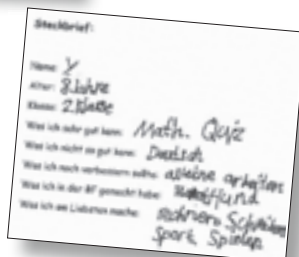 Steckbrief:
Name: Y
Alter: 8 Jahre
Klasse: 2 Klasse
Was ich sehr gut kann: Math. Quiz
Was ich nicht so gut kann: Deutsch
Was ich noch verbessern sollte: alleine arbeiten
Was ich in der gemacht habe:
Was ich am Liebsten mache: Schreiben
Sport Spielen